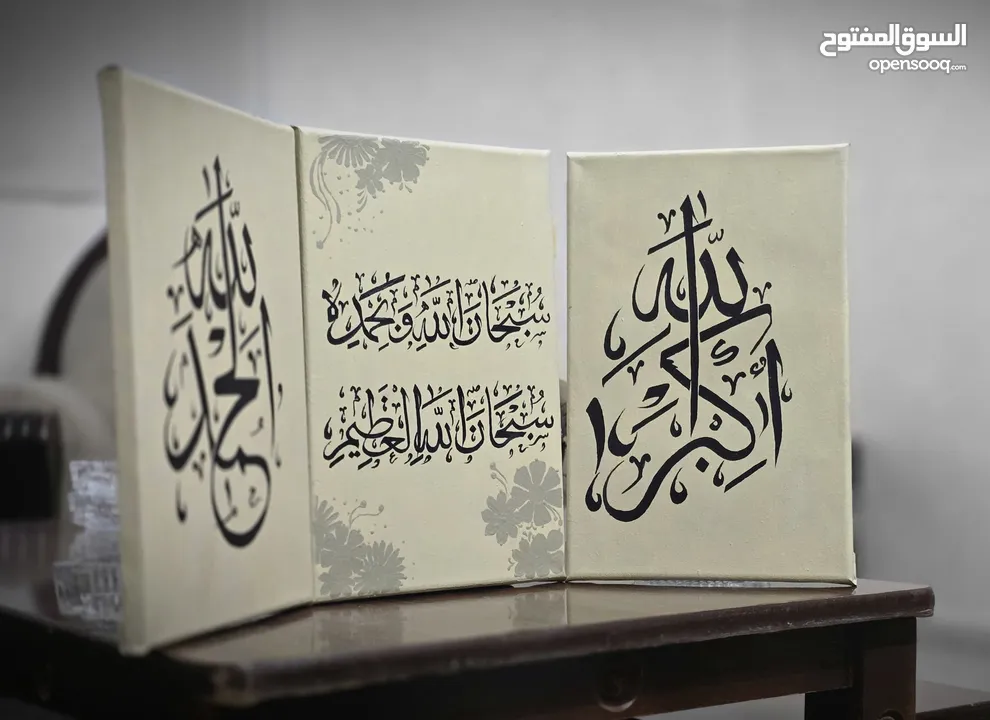 السوق المفتوح
opensooq.com
الله أكبر
سُبْحَانَ اللهِ وَبِحَمْدِهِ
سُبْحَانَ اللهِ العَظِيمِ
الحمد لله